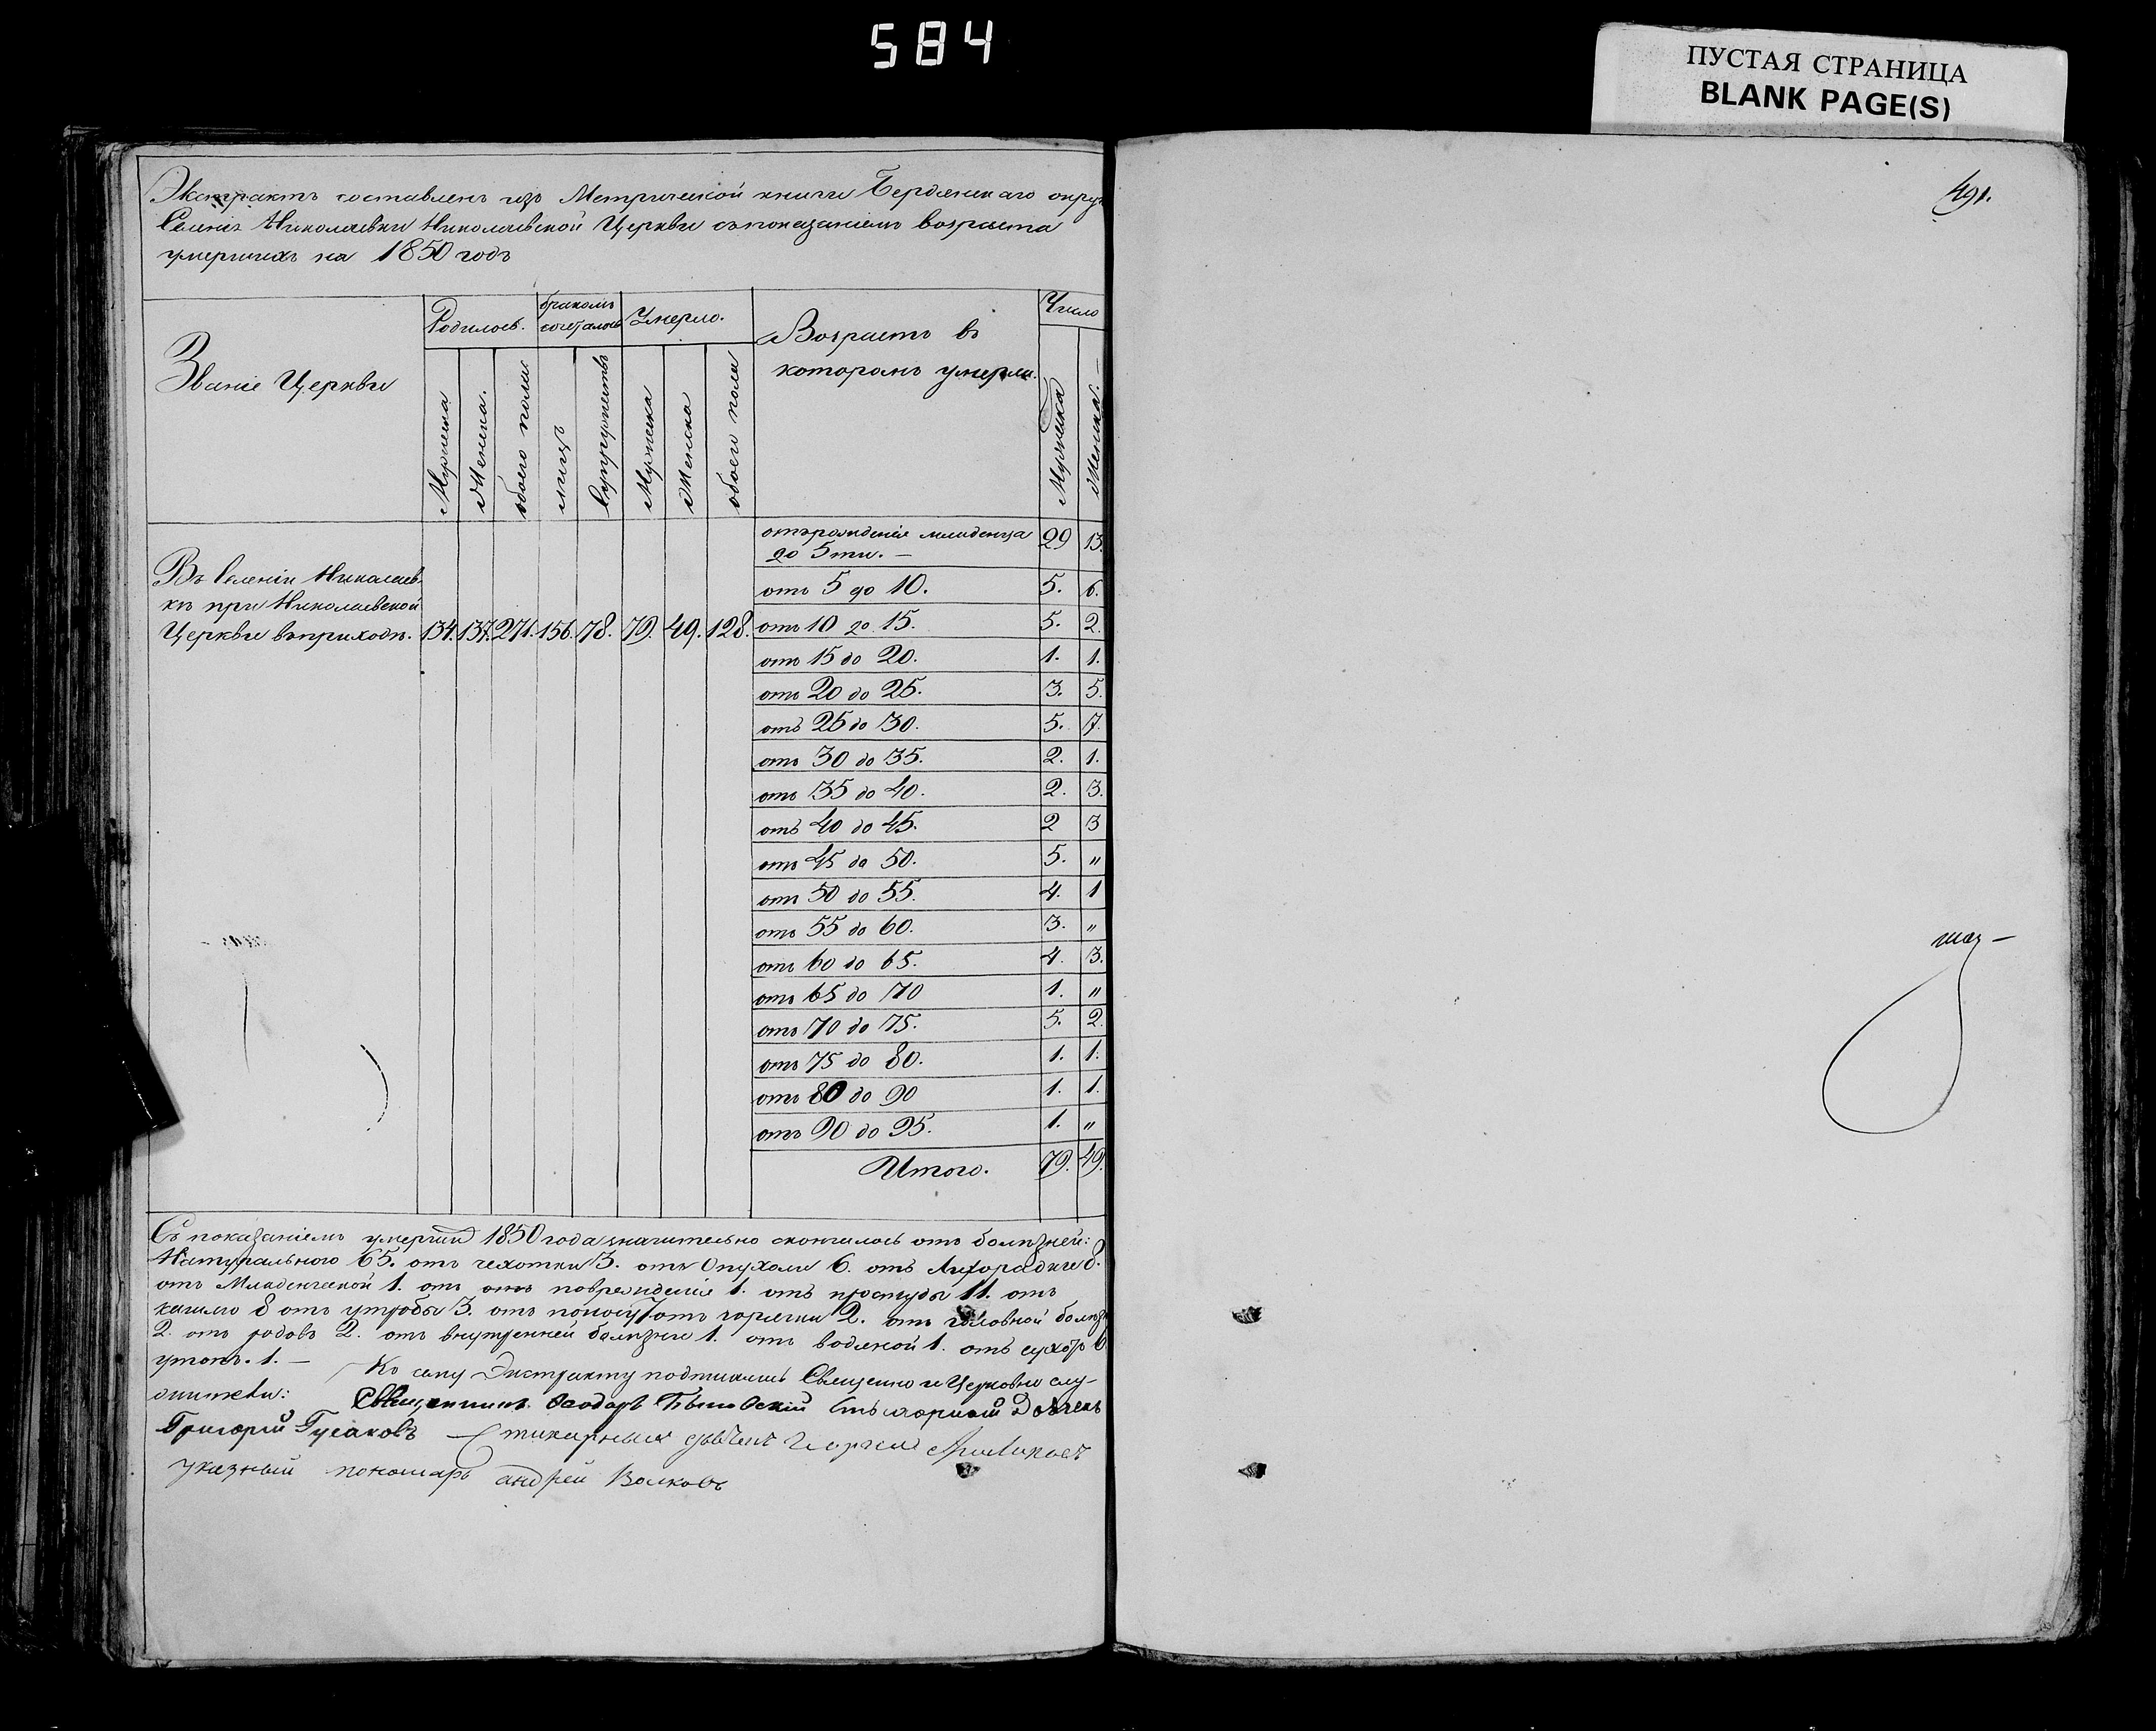 584
ПУСТАЯ СТРАНИЦА
BLANK PAGE(S)
491.
Экстрактъ составленъ изъ Метрической книги Бердянскаго окру
Селенія Николаевки Николаевской Церкви съ показаніемъ возраста
умершихъ на 1850 годъ
Званіе Церкви
Родилось.
бракомъ сочеталось
Умерло.
Возрастъ въ
которомъ умерли.
Число
Мужеска
Женска.
обоего пола
лицъ
Супружествъ
Мужеска
Женска
обоего пола
Мужеска
Женска.
отъ рожденія младенца 29 13.
до 5ти. —
Въ Селеніи Николаев-
кѣ при Николаевской
Церкви въ приходѣ. 134. 137. 271. 156. 78. 79. 49. 128.
отъ 5 до 10. 5. 6.
отъ 10 до 15. 5. 2.
отъ 15 до 20. 1. 1.
отъ 20 до 25. 3. 5.
отъ 25 до 30. 5. 7.
отъ 30 до 35. 2. 1.
отъ 35 до 40. 2. 3.
отъ 40 до 45. 2 3
отъ 45 до 50. 5. "
отъ 50 до 55. 4. 1
отъ 55 до 60. 3. "
отъ 60 до 65. 4. 3.
отъ 65 до 70 1. "
отъ 70 до 75. 5. 2.
отъ 75 до 80. 1. 1.
отъ 80 до 90 1. 1.
отъ 90 до 95. 1. "
Итого. 79. 49.
Съ показаніемъ умершихъ 1850 года значительно скончалось отъ болѣзней:
Натурального 65. отъ чехотки 3. отъ Опухоли 6. отъ Лихорадки 8.
отъ Младенческой 1. отъ отъ поврежденія 1. отъ простуды 11. отъ
кашлю 8 отъ утробы 3. отъ поносу 7 отъ горячки 2. отъ головной болѣз
2. отъ родовъ 2. отъ внутренней болѣзни 1. отъ водяной 1. отъ
утоп. 1. —
Къ сему Экстракту подписались Священно и Церковно слу-
жители: Священникъ Стихарный Дьячекъ
Григорій Гусаковъ Стихарный дьячекъ
указный пономарь андрей Волковъ